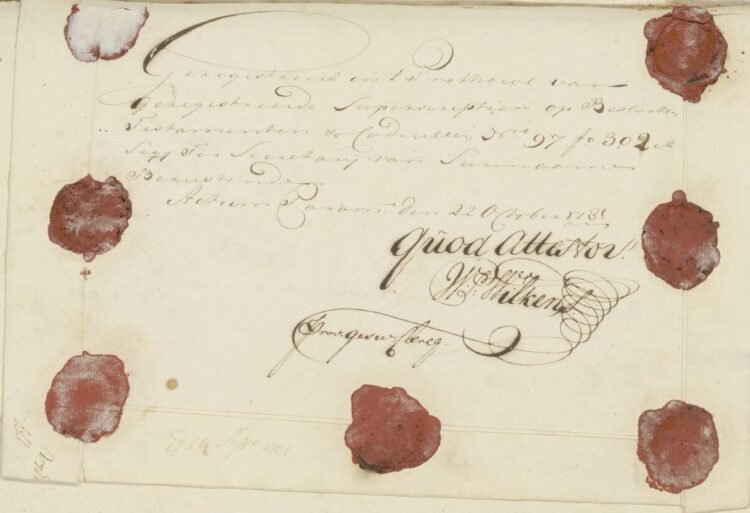 Geregistreert in't Prothocol van
geregistreerde Superscriptien op Beslooten
Testamenten & Codicillen, N.ro 97 fo 302 et
Seqq Ter Secretarij van Suriname
Berustende
Actum Param: den 22 October 1781
Quod Attestor
Wm: Wilkens
Prov: gesw: Clercq.